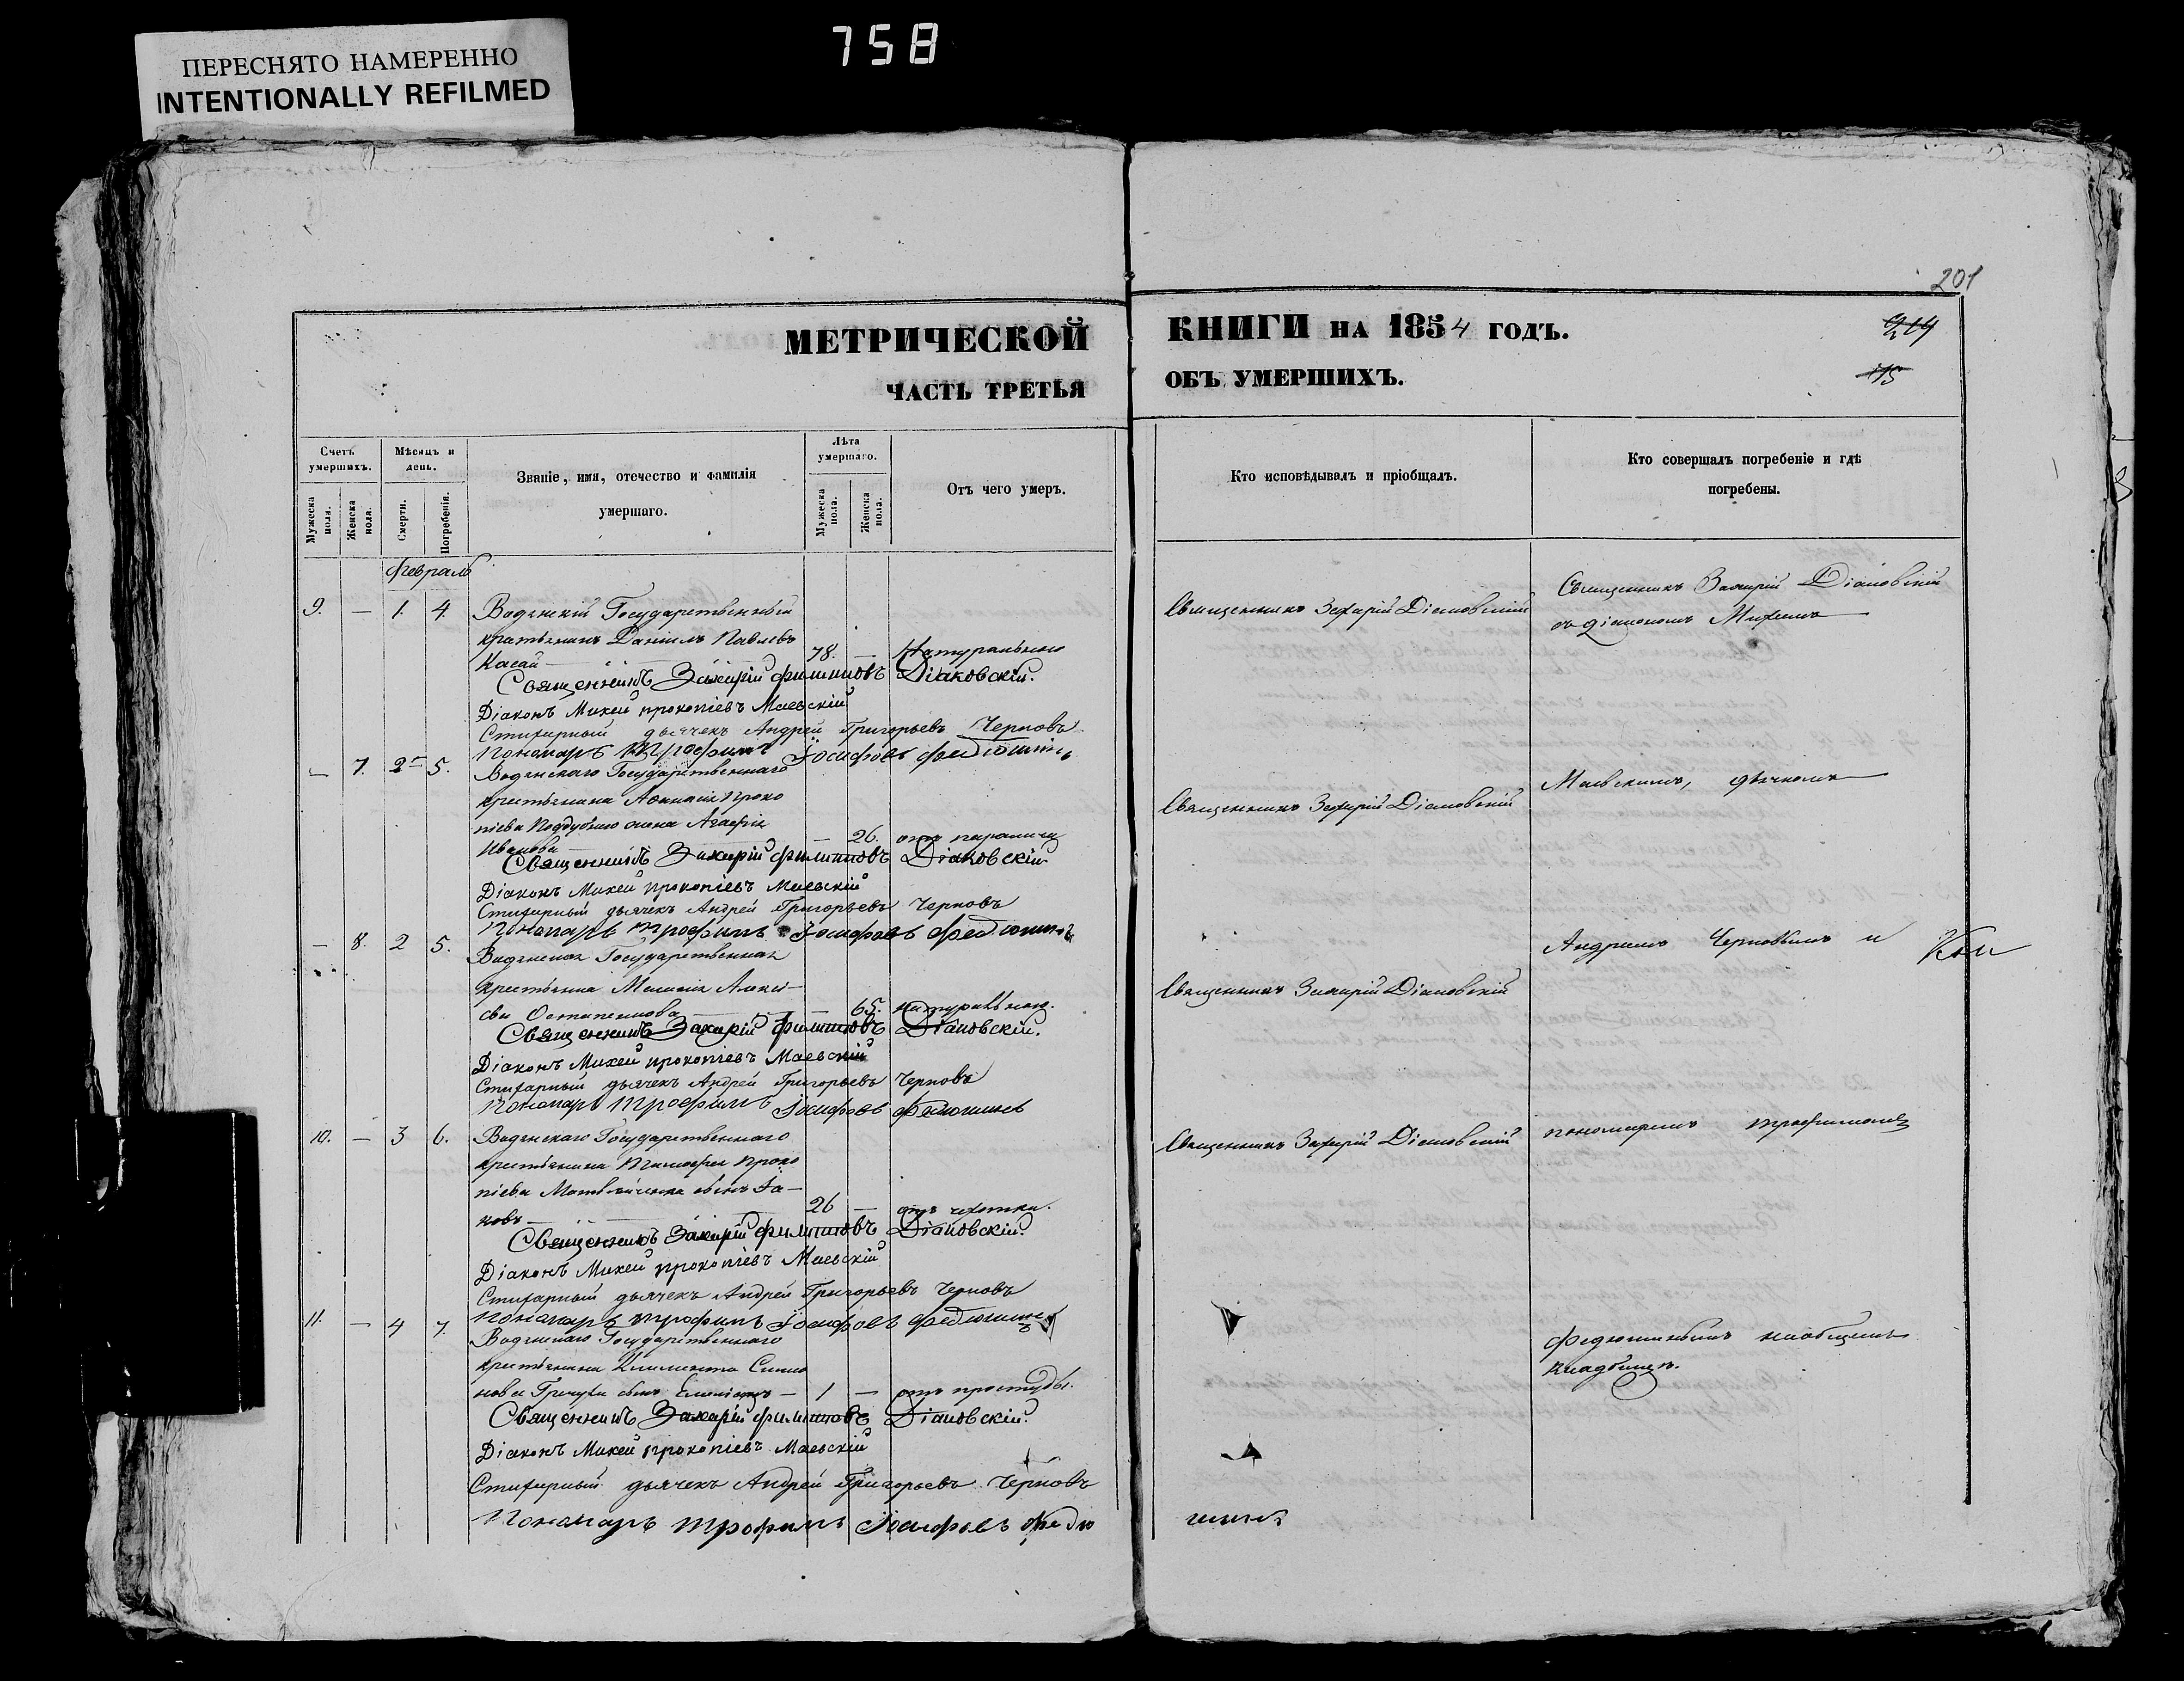 ПЕРЕСНЯТО НАМЕРЕННО
INTENTIONALLY REFILMED
758
201
МЕТРИЧЕСКОЙ КНИГИ НА 1854 ГОДЪ.
ЧАСТЬ ТРЕТЬЯ ОБЪ УМЕРШИХЪ.
115
Счетъ умершихъ.
Мужеска пола.
Женска пола.
Мѣсяцъ и день.
Смерти.
Погребенія.
Званіе, имя, отечество и фамилія
умершаго.
Лѣта умершаго.
Мужеска пола.
Женска пола.
Отъ чего умеръ.
Кто исповѣдывалъ и пріобщалъ.
Кто совершалъ погребеніе и гдѣ
погребены.
Февраль
9. — 1. 4. Водянскій Государственный
крестьянинъ Даніилъ Павловъ
Касай — 78. — Натуральною
Священникъ Захарій Діаковскій
Священникъ Захарій Діаковскій
съ діакономъ Михеемъ
Священникъ Захарій Филиповъ Діаковскій.
Діаконъ Михей Прокопіевъ Маевскій
Стихарный дьячекъ Андрей Григорьевъ Черновъ
Пономарь Трофимъ Іосифовъ Федюшинъ
— 7. 2 5. Водянскаго Государственнаго
крестьянина Афанасія Проко
піева Поддубнаго жена Агафія
Иванова — 26. отъ паралича
Священникъ Захарій Діаковскій
Маевскимъ, дьячкомъ
Священникъ Захарій Филиповъ Діаковскій
Діаконъ Михей Прокопіевъ Маевскій
Стихарный дьячекъ Андрей Григорьевъ Черновъ
Пономарь Трофимъ Іосифовъ Федюшинъ
— 8. 2 5. Водянская Государственная
крестьянка Меланія Алексѣ-
ева Остапенкова — 65. натуральною.
Священникъ Захарій Діаковскій
Андреемъ Черновымъ и
Священникъ Захарій Филиповъ Діаковскій.
Діаконъ Михей Прокопіевъ Маевскій
Стихарный дьячекъ Андрей Григорьевъ Черновъ
Пономарь Трофимъ Іосифовъ Федюшинъ
10. — 3 6. Водянскаго Государственнаго
крестьянина Тимофея Проко
піева сынъ Іа-
ковъ — 26 — отъ чахотки.
Священникъ Захарій Діаковскій
пономаремъ Трофимомъ
Священникъ Захарій Филиповъ Діаковскій.
Діаконъ Михей Прокопіевъ Маевскій
Стихарный дьячекъ Андрей Григорьевъ Черновъ
Пономарь Трофимъ Іосифовъ Федюшинъ
11. — 4 7. Водянскаго Государственнаго
крестьянина Климента Симо
нова сынъ — 1 — отъ простуды.
Федюшинымъ на общемъ
кладбищѣ.
Священникъ Захарій Филиповъ Діаковскій.
Діаконъ Михей Прокопіевъ Маевскій
Стихарный дьячекъ Андрей Григорьевъ Черновъ
Пономарь Трофимъ Іосифовъ Федю шинъ